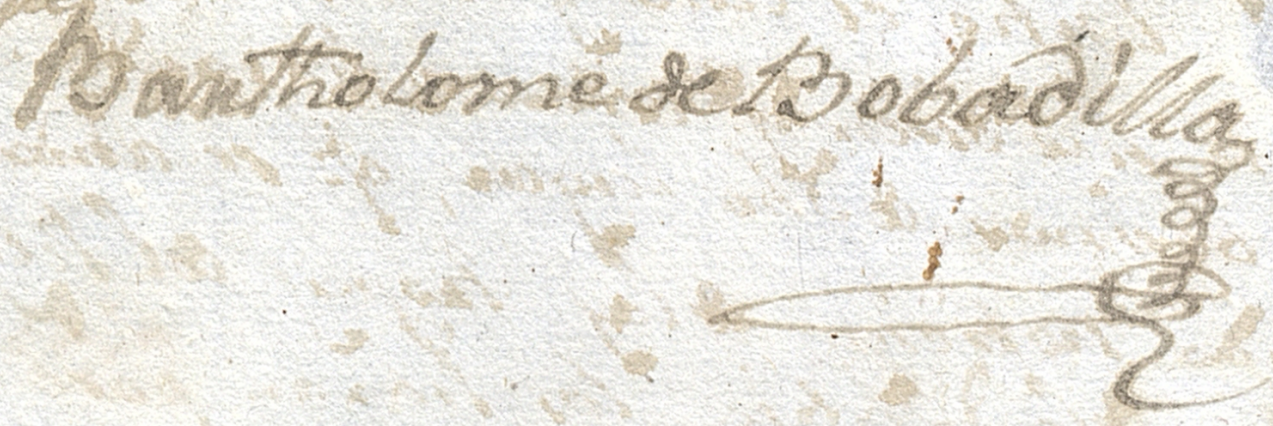 Bartholome de Bobadilla